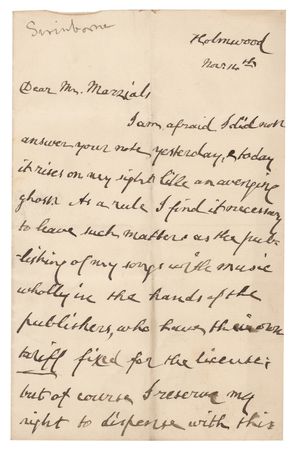 Swinborne
Holmwood
Novr 14th
Dear Mr. Marzials
I am afraid I did not
answer your note yesterday, & today
it rises on my sight like an avenging
ghost. As a rule I find it necessary
to leave such matters as the pub-
-lishing of my songs with music
wholly in the hands of the
publishers, who have their own
tariff fixed for the license:
but of course I reserve my
right to dispense with this